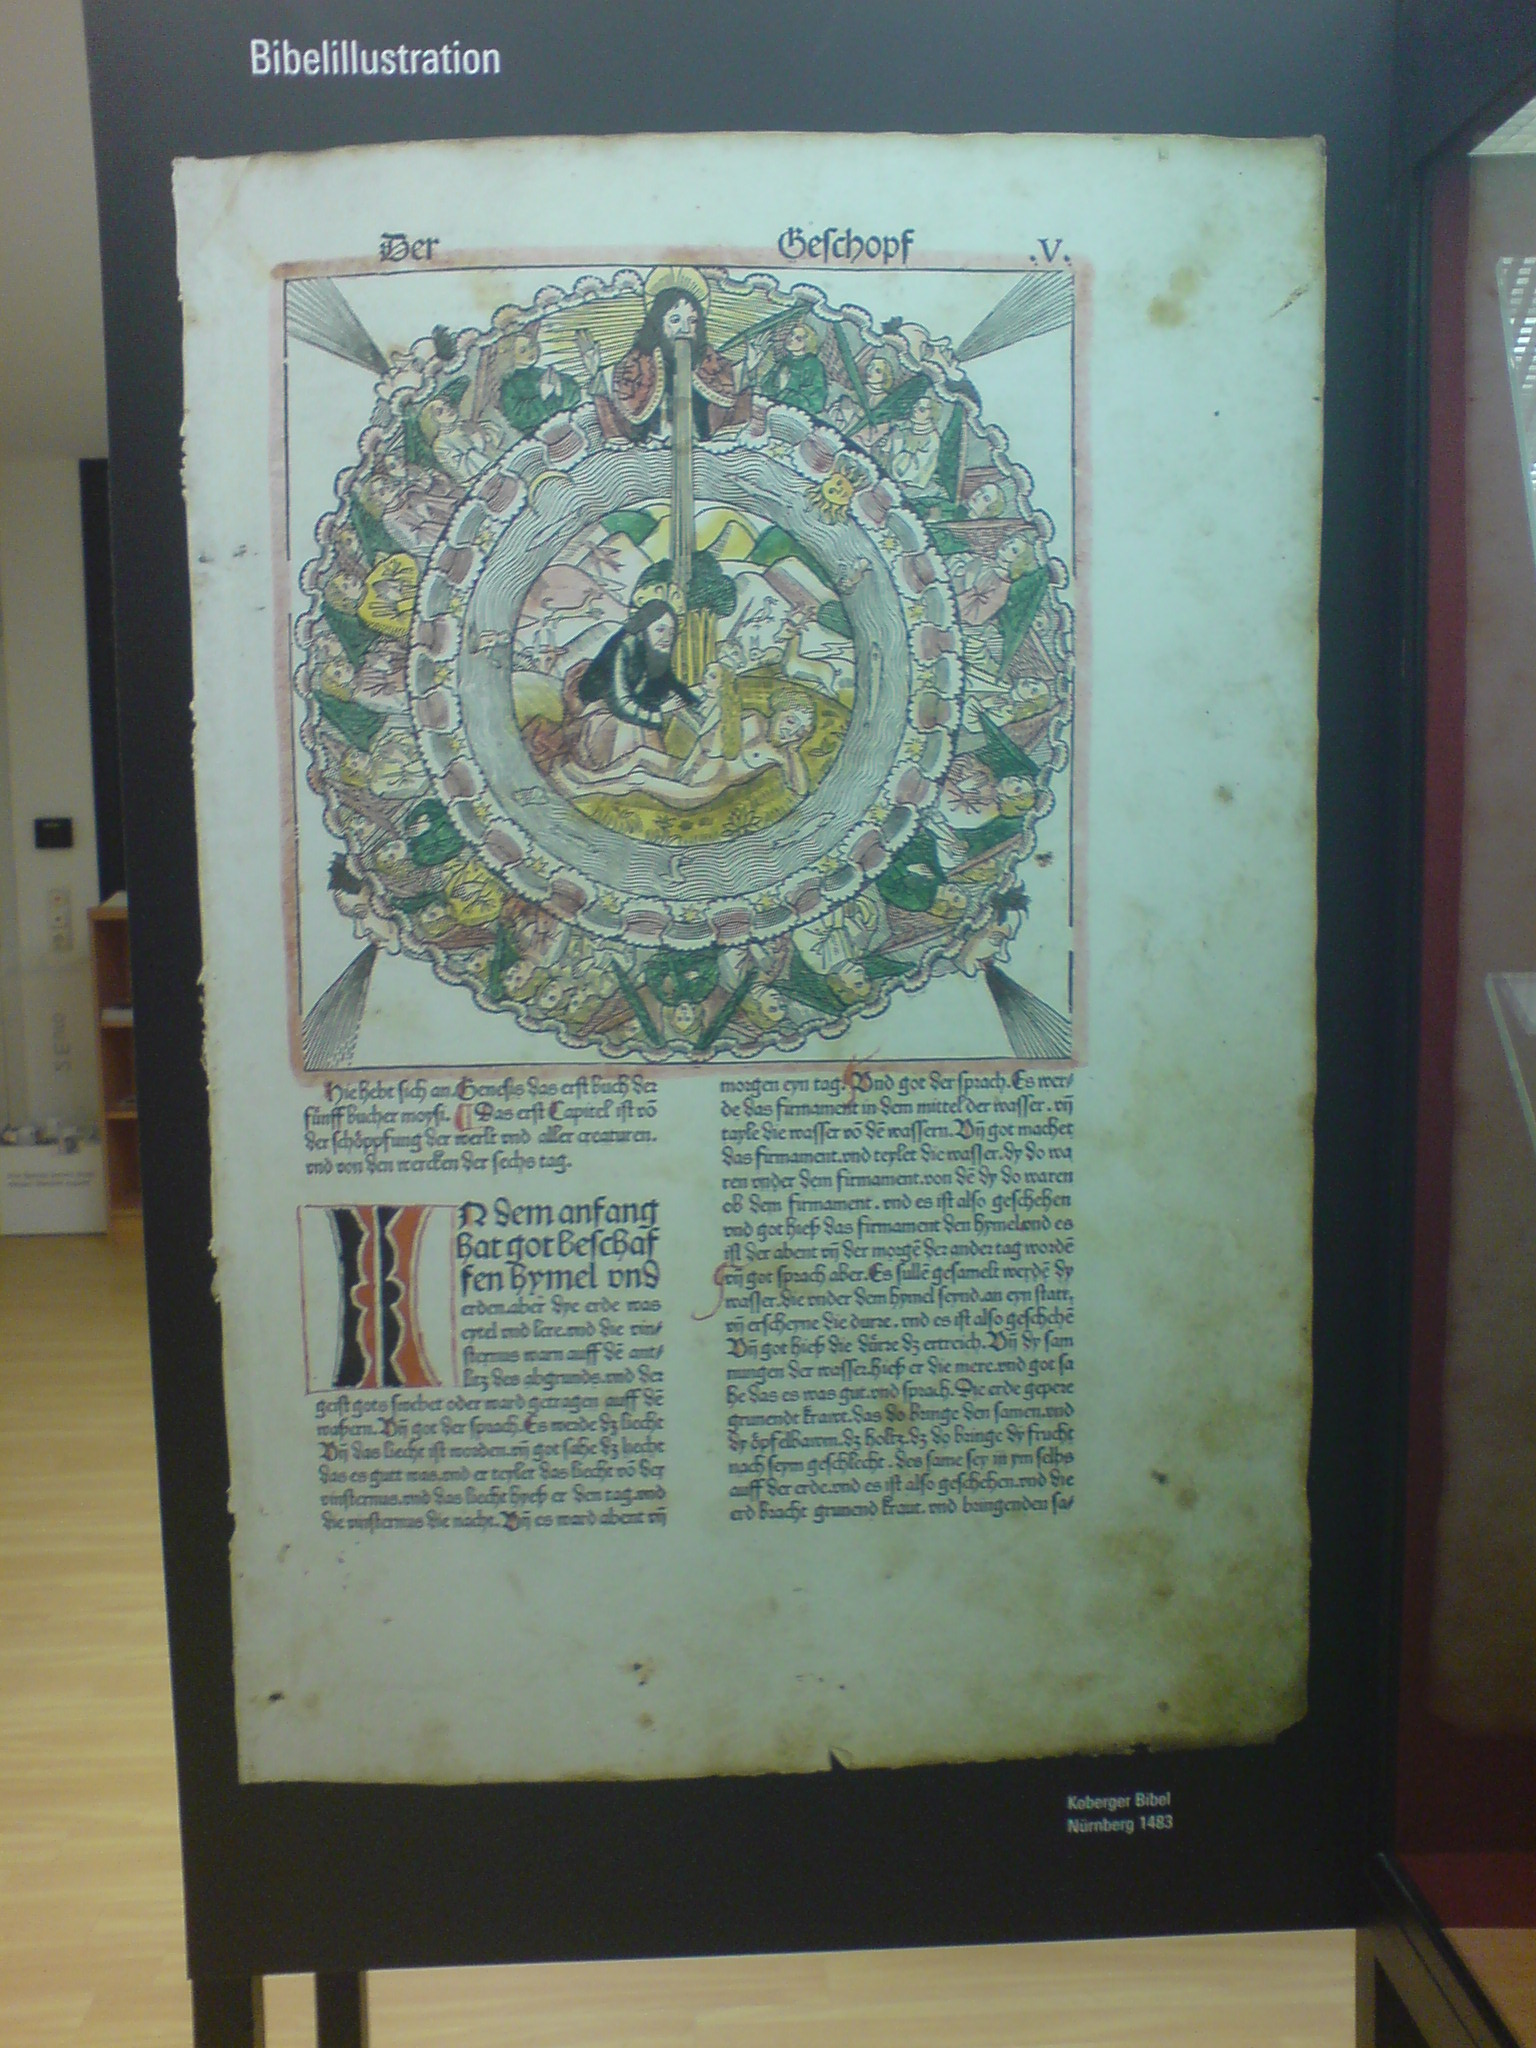 Bibelillustration
Der Geschopf .V.
Hie hebt sich an. Genesis das erst buch der
fünff bucher moysi. Das erst Capitel ist vō
der schöpffung der werlt vnd aller creaturen.
vnd von den wercken der sechs tag.
IN dem anfang
hat got beschaf
fen hymel vnd
erden. aber dye erde was
eytel vnd lere. vnd die vin/
sternus warn auff dē ant/
litz des abgrunds. vnd der
geist gots swebet oder ward getragen auff dē
waßern. Vn̄ got der sprach. Es werde dz liecht
Vn̄ das liecht ist worden. vn̄ got sahe dz liecht
das es gutt was. vnd er teylet das liecht vō der
vinsternus. vnd das liecht hyeß er den tag. vnd
die vinsternus die nacht. Vn̄ es ward abent vn̄
morgen eyn tag. Vnd got der sprach. Es wer/
de das firmament in dem mittel der wasser. vn̄
tayle die wasser vō dē wassern. Vn̄ got machet
das firmament. vnd teylet die wasser. dy do wa
ren vnder dem firmament. von dē dy do waren
ob dem firmament. vnd es ist also geschehen
vnd got hieß das firmament den hymel. vnd es
ist der abent vn̄ der morgē der ander tag wordē
vn̄ got sprach aber. Es sullē gesamelt werdē dy
wasser. die vnder dem hymel seynd. an eyn statt.
vn̄ erscheyne die durre. vnd es ist also geschehē
Vn̄ got hieß die dürre dz ertreich. Vn̄ dy sam
nungen der wasser hieß er die mere. vnd got sa
he das es was gut. vnd sprach. Die erde gepere
grunendt kraut. das do bringe den samen. vnd
dy öpfelbawm. dz holtz. dz do bringe dy frucht
nach seym geschlecht. des same sey in ym selbs
auff der erde. vnd es ist also geschehen. vnd die
erd bracht grunend kraut. vnd bringenden sa/
Koberger Bibel
Nürnberg 1483